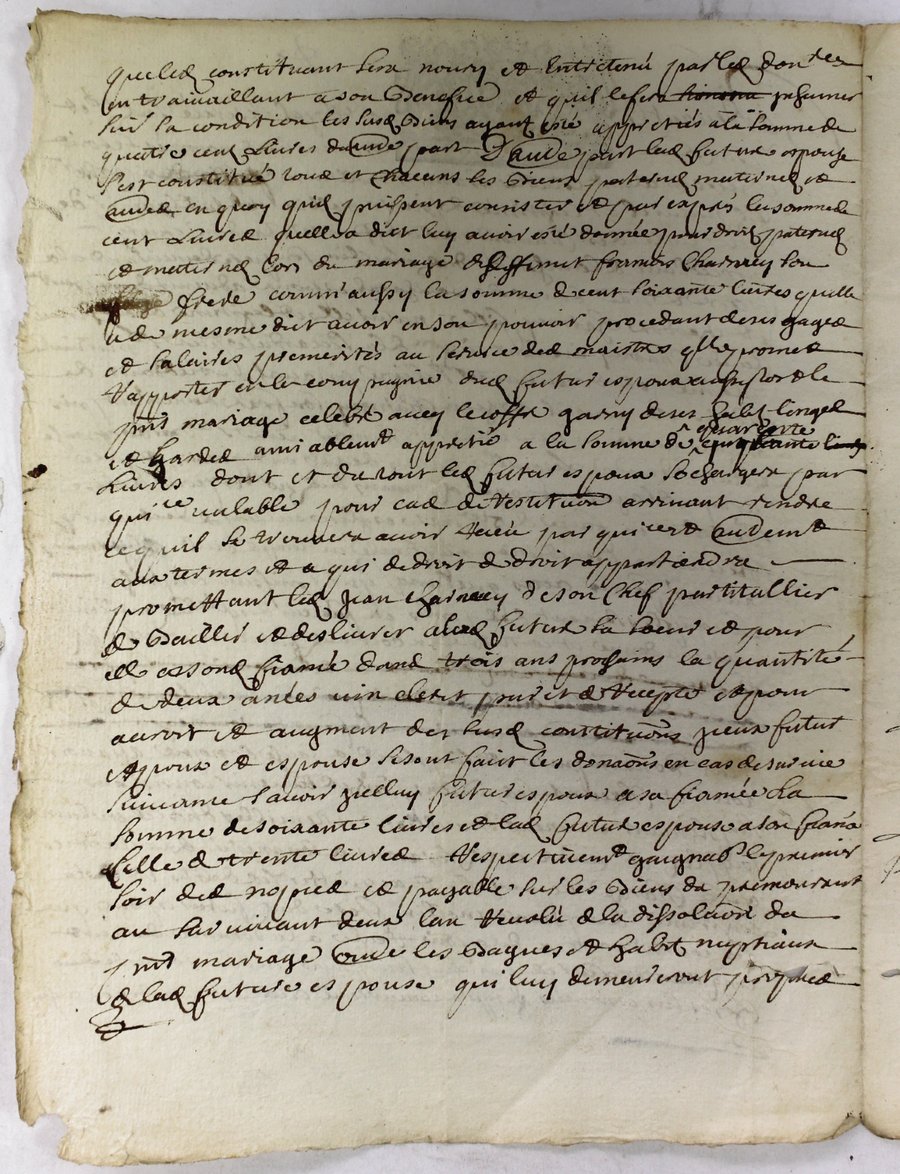 que led constituant sera nourry et entretenu par led donat.re
en travaillant a son benefice et quil le fera inhumer
sur sa condition les susd biens ayant esté appretiés a la somme de
quatre cent livres dune part D'aude part lad future espouse
s'est constitué tous et chacuns ses biens paternels maternels et
audes en quoy quils puissent consister et par exprés la somme de
cent livres quelle a dict luy avoir esté donnée pour droit paternel
et maternel lors du mariage de deffunct francois Charvey son
frere comm'aussy la somme de cent soixante livres quelle
a de mesme dict avoir en son pouvoir procedant de ses gages
et salaires premerités au service des maistres qlle promet
d'apporter en la compagnie dud futur espoux aussitost le
pnt mariage celebré avec le coffre garny de ses habits linges
et hardes amiablemt appretié a la somme de quarante
livres dont et du tout led futur espoux se chargera par
quice valable pour cas de restitution arrivant rendre
ce quil se trouvera avoir receu par quice et audemt
aux termes et a qui de droit de droit appartiendra
promettant led jean charvey de son chef particullier
de bailler et deslivrer a lad future sa soeur et pour
elle a son fiancé dans trois ans prochains la quantité
de deux anées vin clerit pur et de recepte et pour
accroit et augment des susd constitutions yceux futur
espoux et espouse se sont faict les donaons en cas de survie
suivante sçavoir ycelluy futur espoux a sa fiancée la
somme de soixante livres et lad future espouse a son fiancé
celle de trente livres respectivemt gaignab le premier
soir des nopces et payable sur les biens du premourant
au survivant deux lan revolu de la dissolution du
pnt mariage oude les bagues et habits nuptiaux
de lad future espouse qui luy demeureront propres